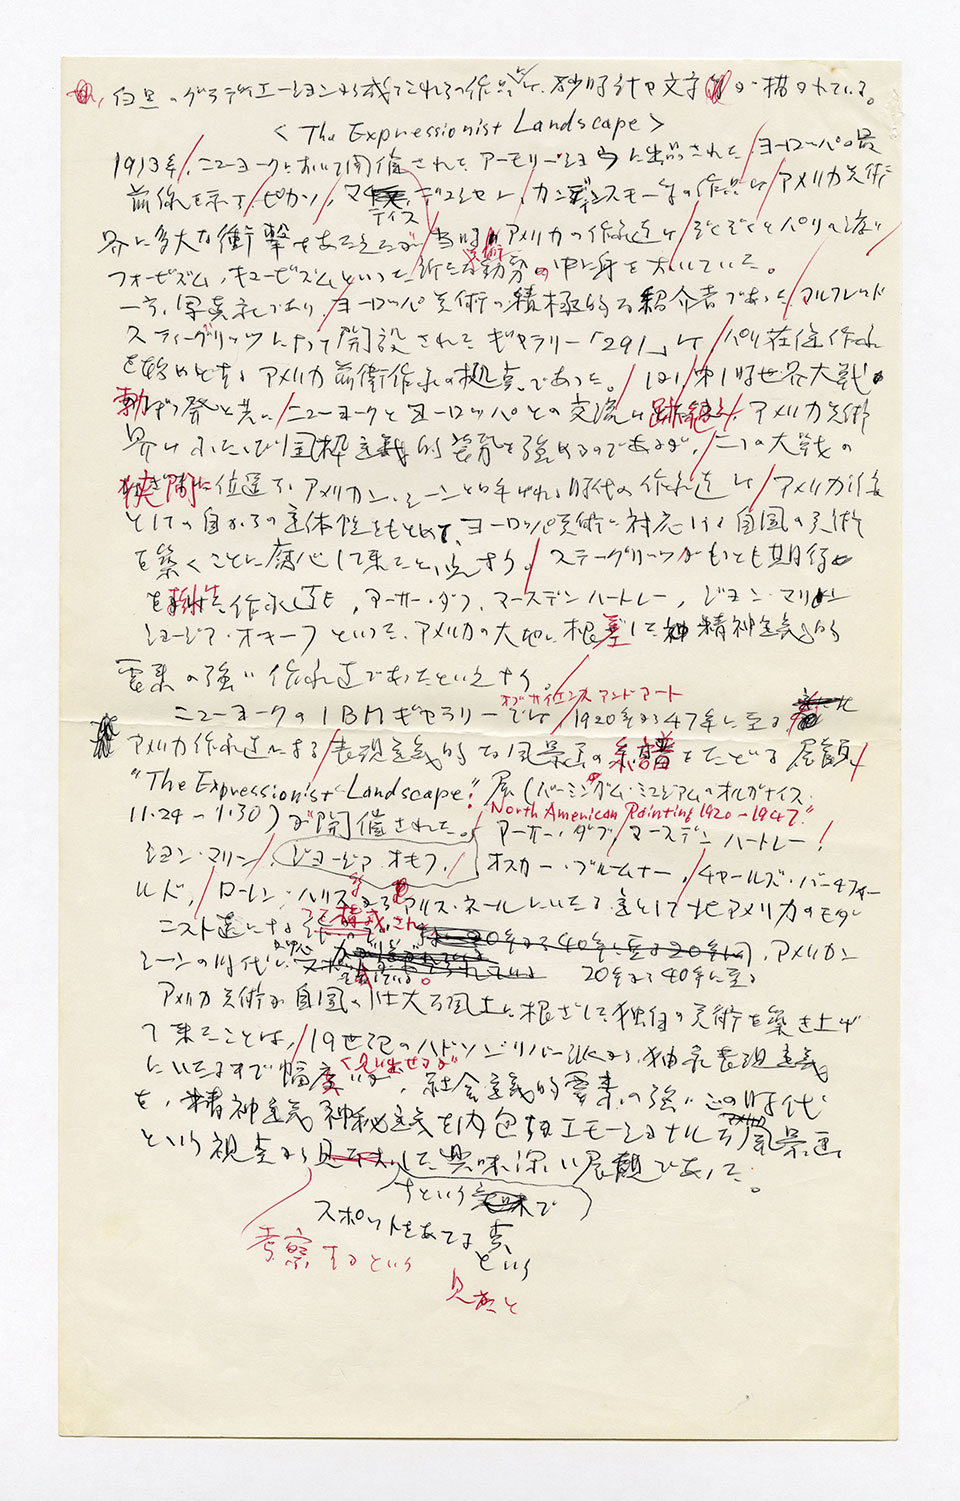 白黒のグラデュエーションから成るこれらの作品には、砂時計や文字が描かれている。
＜The Expressionist Landscape＞
1913年、ニューヨークにおいて開催されたアーモリー・ショウに出品されたヨーロッパの最
前衛を示す、ピカソ、マティス、デュシャン、カンディンスキー等の作品は、アメリカ美術
界に多大な衝撃をあたえたが、当時、アメリカの作家達は、ぞくぞくとパリへ渡り
フォービズム、キュービズムといった新たな芸術動勢の中に身を
一方、写真家であり、ヨーロッパ美術の積極的な紹介者であった、アルフレッド
スティーグリッツによって開設されたギャラリー「291」は、パリ在住作家
を始めとするアメリカ前衛作家の拠点であった。第1時世界大戦
勃発と共に、ニューヨークとヨーロッパとの交流は跡絶え、アメリカ美術
界はふたたび国粋主義的姿勢を強めるのであるが、二つの大戦の
狭間に位置す アメリカン・シーンと呼ばれる時代の作家達は、アメリカ
としての自からの主体性をもとめて、ヨーロッパ美術に対応する自国の美術
を築くことに腐心して来たと
作家達も、アーサー・ダブ、マースデンハートレー、ジョン・マリン
ジョージア・オキーフといった、アメリカの大地に根差した精神主義的
要素の強い作家達であったといえよう。
オブ カナディアン アンド アート
ニューヨークのIBMギャラリーでは、1920年から47年に至る
アメリカ作家達による表現主義的な風景画の系譜をたどる展観
"The Expressionist Landscape: 展（バーミンガム・ミュージアムのオルガナイズ
North American Painting 1920-1947"
11.29-1.30）が開催された。アーサー・ダブ、マースデン ハートレー、
ジョン・マリン、ジョージア オキーフ、オスカー・ブルームナー、チャールズ・バーチフィー
ルド、ローレン・ハリスからアリス・ネールにいたる主として北アメリカのモダ
ニスト達による 構成され 20年から40年に至る20年間、アメリカン
シーンの時代に 20年から40年に至る
アメリカ美術が自国の壮大な風土に根ざした独自の美術を築き上げ
て来たことは、19世紀のハドソンリバー派から、抽象表現主義
にいたるまで幅広く見い出せるが、社会主義的要素の強いこの時代
を、精神主義 神秘主義を内包するエモーショナルなアメリカの風景画
という視点から した興味深い展観であった。
という で
スポットをあてる という
考察するという
見方と